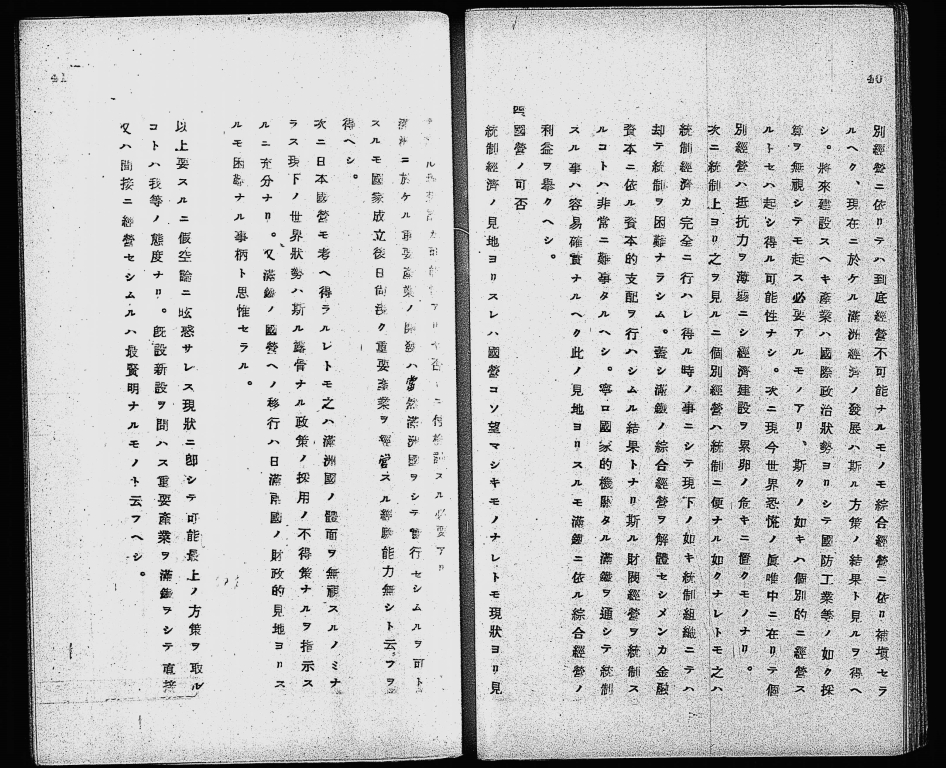 40
別經營ニ依リテハ到底經營不可能ナルモノモ綜合經營ニ依リ補塡セラ
ルヘク、現在ニ於ケル滿洲經濟ノ發展ハ斯ル方策ノ結果ト見ルヲ得ヘ
シ。將來建設スヘキ產業ハ國際政治狀勢ヨリシテ國防工業等ノ如ク採
算ヲ無視シテモ起ス必要アルモノアリ、斯クノ如キハ個別的ニ經營ス
ルトセハ起シ得ル可能性ナシ。次ニ現今世界恐慌ノ眞唯中ニ在リテ個
別經營ハ抵抗力ヲ薄弱ニシ經濟建設ヲ累卵ノ危キニ置クモノナリ。
次ニ統制上ヨリ之ヲ見ルニ個別經營ハ統制ニ便ナル如クナレトモ之ハ
統制經濟カ完全ニ行ハレ得ル時ノ事ニシテ現下ノ如キ統制組織ニテハ
却テ統制ヲ困難ナラシム。蓋シ滿鐵ノ綜合經營ヲ解體セシメンカ金融
資本ニ依ル資本的支配ヲ行ハシムル結果トナリ斯ル財閥經營ヲ統制ス
ルコトハ非常ニ難事タルヘシ。寧ロ國家的機關タル滿鐵ヲ通シテ統制
スル事ハ容易確實ナルヘク此ノ見地ヨリスルモ滿鐵ニ依ル綜合經營ノ
利益ヲ擧クヘシ。
四、國營ノ可否
統制經濟ノ見地ヨリスレハ國營コソ望マシキモノナレトモ現狀ヨリ見
41
ルカ可能ナリヤ否ニ付檢討スル必要アリ
滿洲ニ於ケル重要產業ノ開發ハ當然滿洲國ヲシテ實行セシムルヲ可ト
スルモ國家成立後日尙淺ク重要產業ヲ經營スル經驗能力無シト云フヲ
得ヘシ。
次ニ日本國營モ考ヘ得ラルレトモ之ハ滿洲國ノ體面ヲ無視スルノミナ
ラス現下ノ世界狀勢ハ斯ル露骨ナル政策ノ採用ノ不得策ナルヲ指示ス
ルニ充分ナリ。又滿鐵ノ國營ヘノ移行ハ日滿兩國ノ財政的見地ヨリス
ルモ困難ナル事柄ト思惟セラル。
以上要スルニ假空論ニ眩惑サレス現狀ニ卽シテ可能最上ノ方策ヲ取ル
コトハ我等ノ態度ナリ。旣設新設ヲ問ハス重要產業ヲ滿鐵ヲシテ直接
又ハ間接ニ經營セシムルハ最賢明ナルモノト云フヘシ。